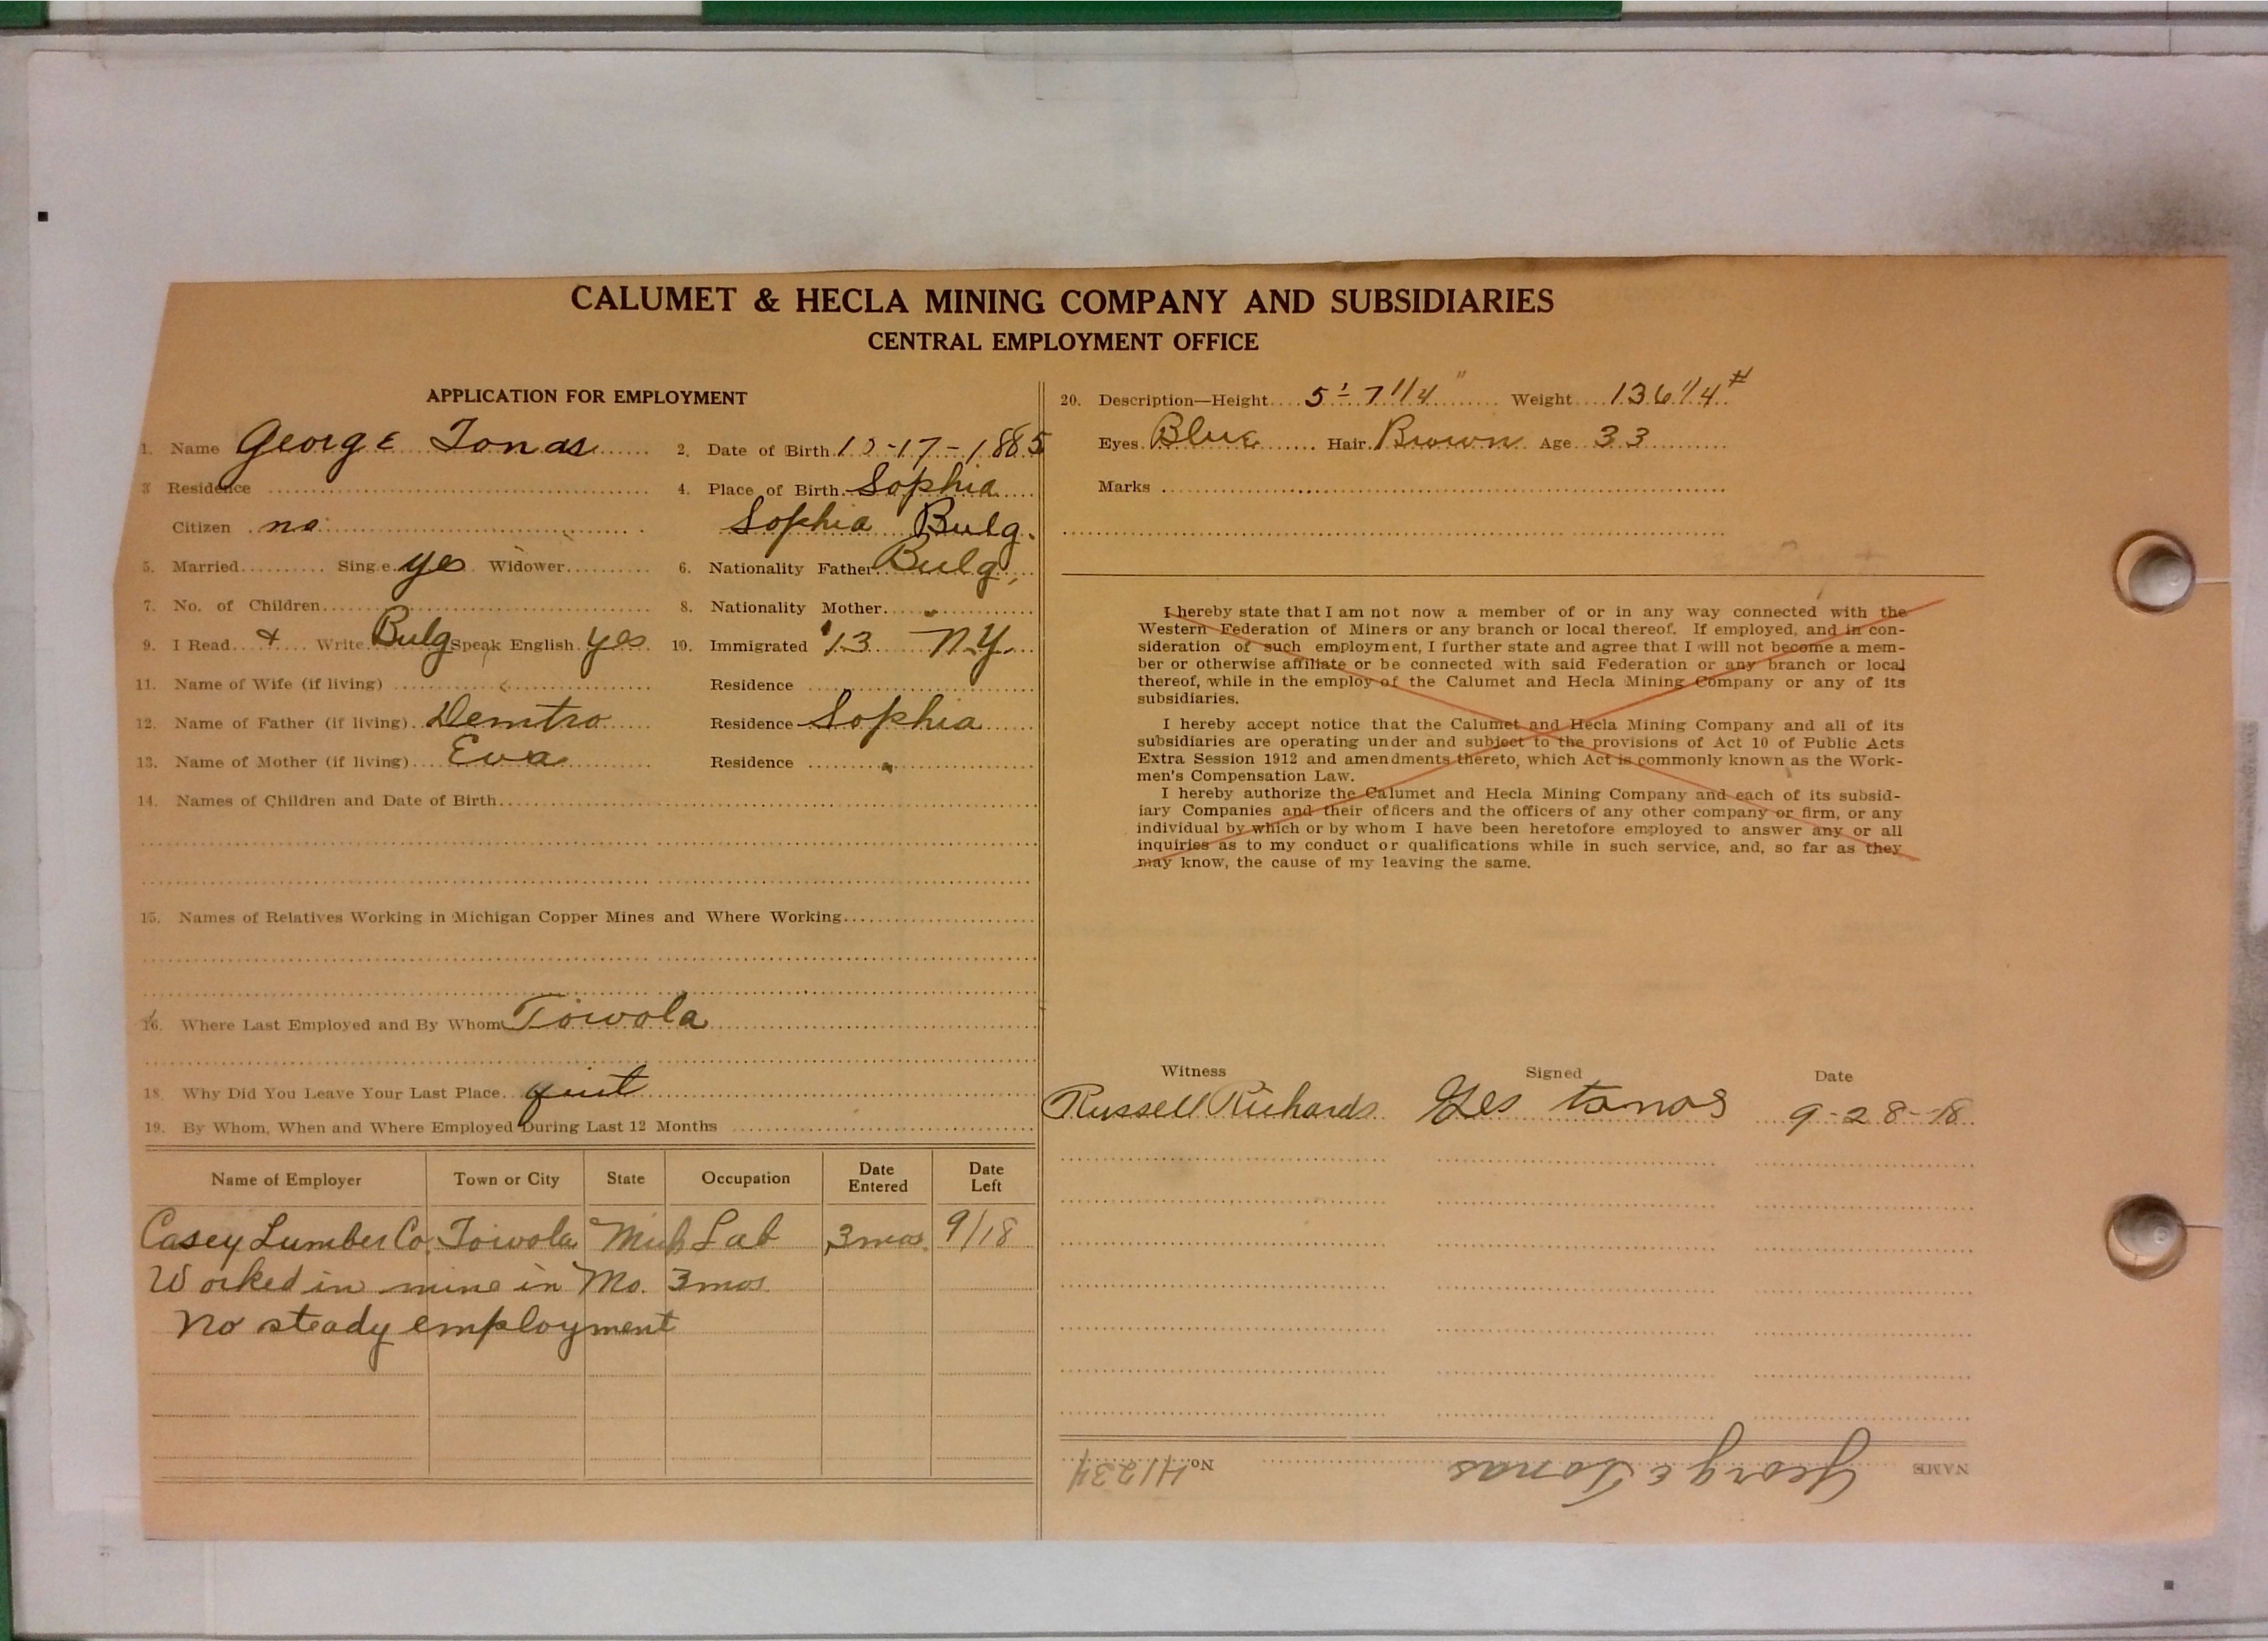 CALUMET & HECLA MINING COMPANY AND SUBSIDIARIES
CENTRAL EMPLOYMENT OFFICE
APPLICATION FOR EMPLOYMENT
1. Name George Tonas 2. Date of Birth -17-1885
3 Residence 4. Place of Birth Sophia
Citizen no Sophia Bulg.
5. Married Single yes Widower 6. Nationality Father Bulg.
7. No. of Children 8. Nationality Mother "
9. I Read & Write Bulg Speak English yes 10. Immigrated '13 N.Y.
11. Name of Wife (if living) Residence
12. Name of Father (if living) Demtro Residence Sophia
13. Name of Mother (if living) Eva Residence "
14. Names of Children and Date of Birth
15. Names of Relatives Working in Michigan Copper Mines and Where Working
16. Where Last Employed and By Whom Toivola
18. Why Did You Leave Your Last Place quit
19. By Whom, When and Where Employed During Last 12 Months
Name of Employer Town or City State Occupation Date Entered Date Left
Casey Lumber Co. Toivola Mich Lab 3 mos. 9/18
Worked in mine in Mo. 3 mos.
No steady employment
20. Description—Height 5'-7 1/4" Weight 136 1/4 #
Eyes Blue Hair Brown Age 33
Marks
I hereby state that I am not now a member of or in any way connected with the
Western Federation of Miners or any branch or local thereof. If employed, and in con-
sideration of such employment, I further state and agree that I will not become a mem-
ber or otherwise affiliate or be connected with said Federation or any branch or local
thereof, while in the employ of the Calumet and Hecla Mining Company or any of its
subsidiaries.
I hereby accept notice that the Calumet and Hecla Mining Company and all of its
subsidiaries are operating under and subject to the provisions of Act 10 of Public Acts
Extra Session 1912 and amendments thereto, which Act is commonly known as the Work-
men's Compensation Law.
I hereby authorize the Calumet and Hecla Mining Company and each of its subsid-
iary Companies and their officers and the officers of any other company or firm, or any
individual by which or by whom I have been heretofore employed to answer any or all
inquiries as to my conduct or qualifications while in such service, and, so far as they
may know, the cause of my leaving the same.
Witness Signed Date
Russell Richards Ges tonas 9-28-18
NAME George Tonas No. 41234